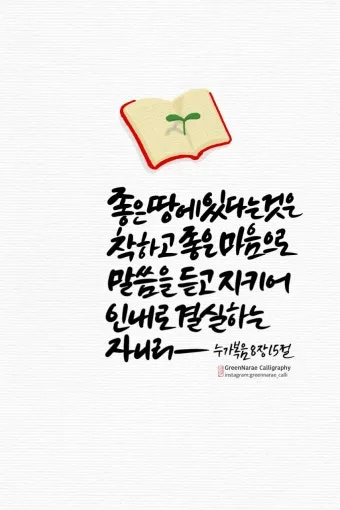 좋은 땅에 있다는 것은
착하고 좋은 마음으로
말씀을 듣고 지키어
인내로 결실하는
자니라 — 누가복음 8장 15절
GreenNarae Calligraphy
instagram:greennarae_calli